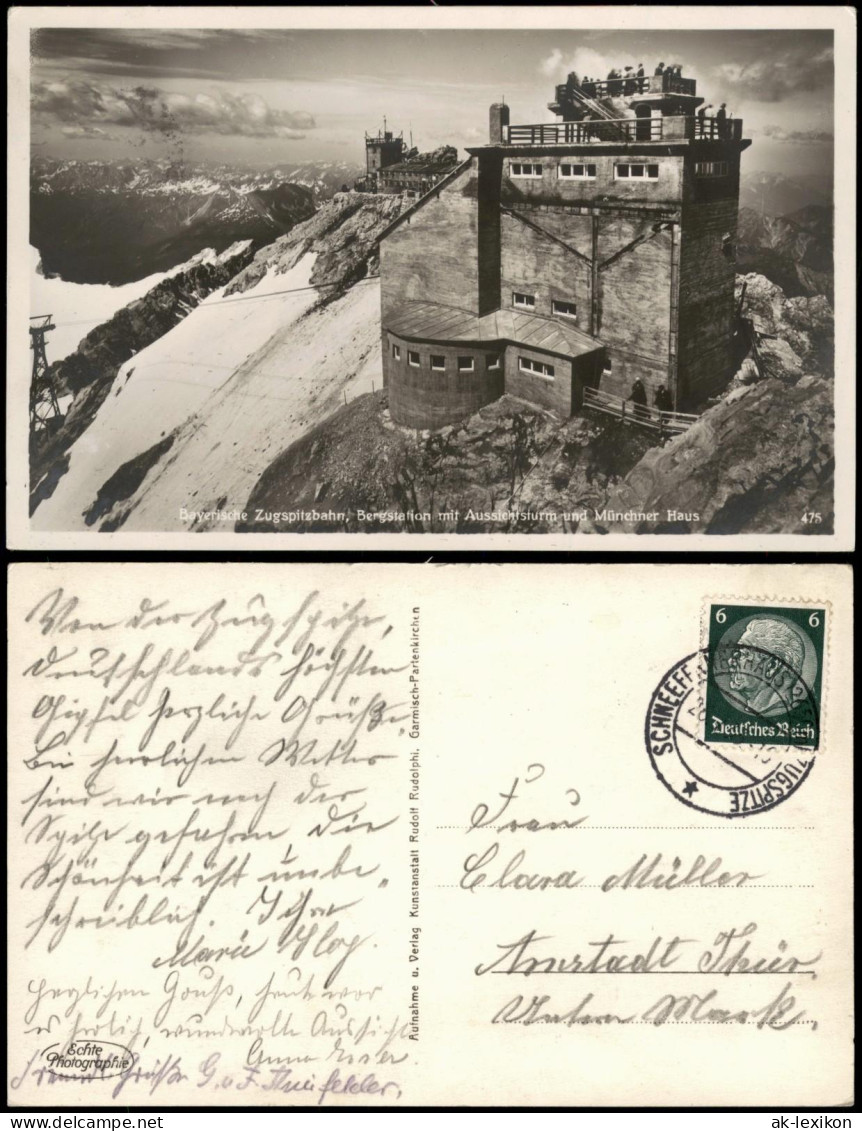 Bayerische Zugspitzbahn, Bergstation mit Aussichtsturm und Münchner Haus
475
Von der Zugspitze,
Deutschlands höchsten
Gipfel herzliche Grüße.
Bei herrlichem Wetter
sind wir nach der
Spitze gefahren. Die
Schönheit ist unbe-
schreiblich. Ihre
Marie
herzlichen Gruß, heute war
es herrlich, wundervolle Aussicht
Anna
Echte
Photographie
Grüße G. u. F.
Aufnahme u. Verlag Kunstanstalt Rudolf Rudolphi, Garmisch-Partenkirchen
6 6
Deutsches Reich
SCHNEEF ZUGSPITZE
Frau
Clara Müller
Arnstadt Thür.
Unterm Markt.
www.ansichtskarten-lexikon.de
ak-lexikon